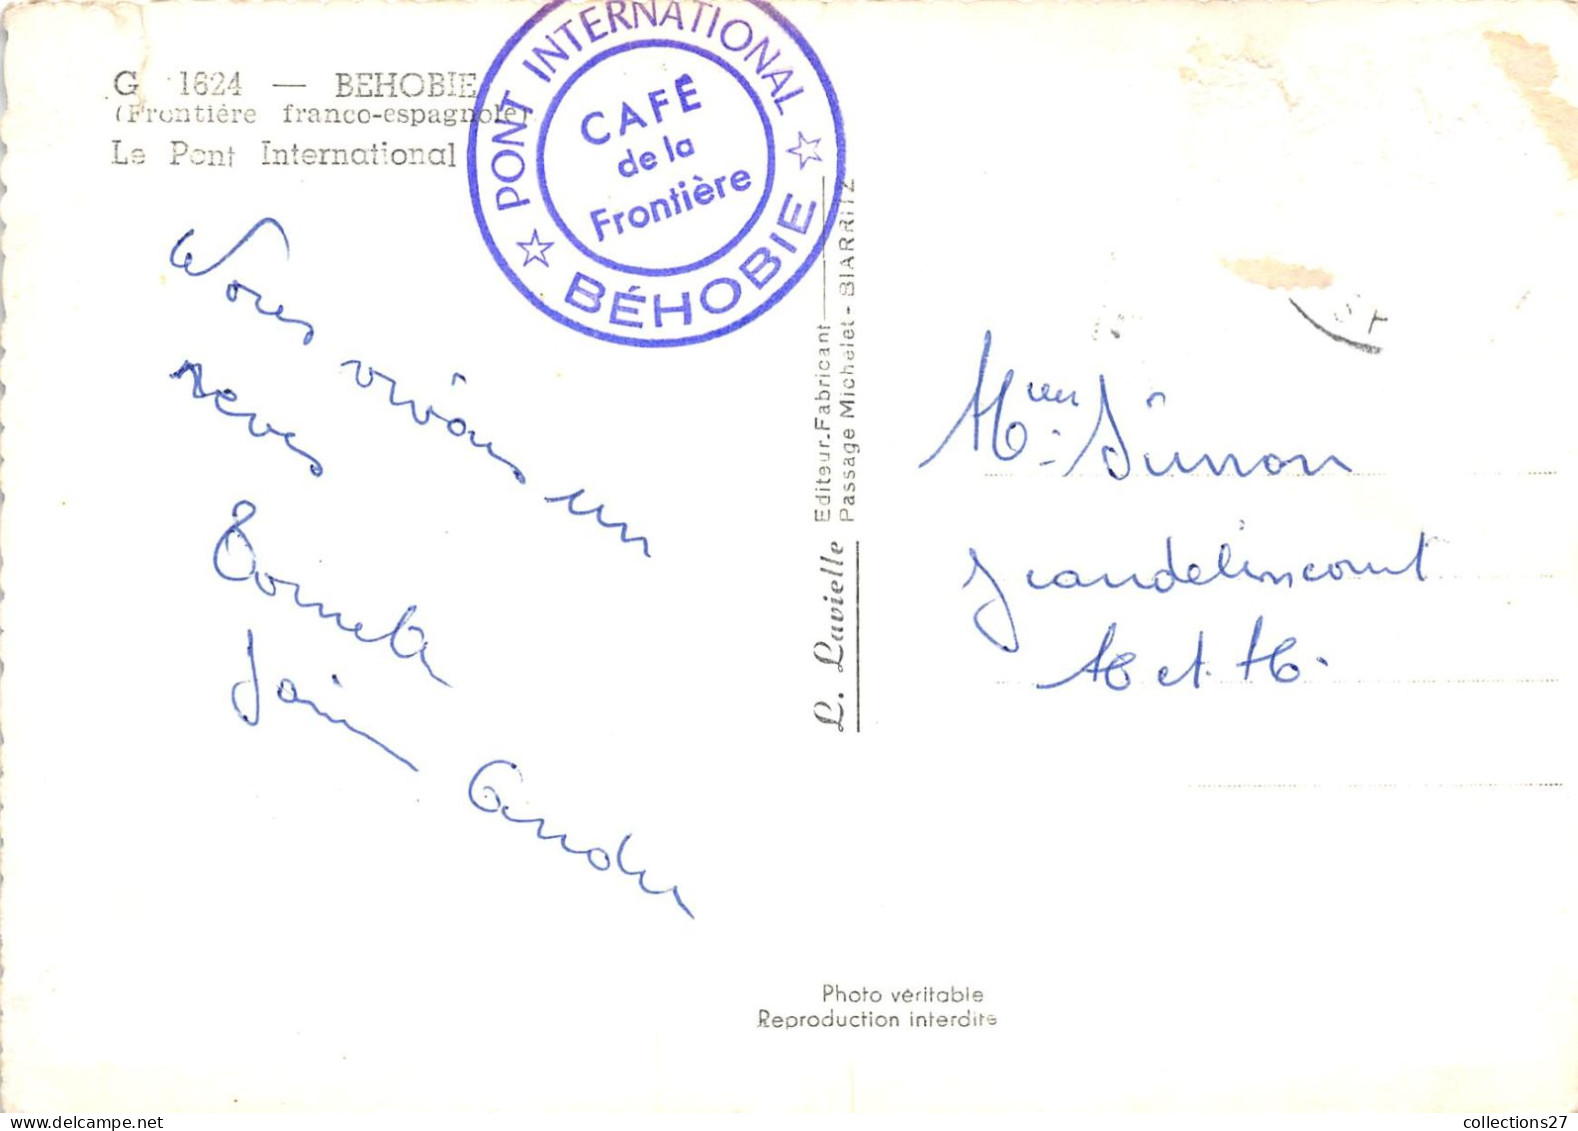 G 1624 — BEHOBIE
(Frontière franco-espagnole)
Le Pont International
PONT INTERNATIONAL
CAFÉ
de la
Frontière
BÉHOBIE
Nous vivons un
reves
L. Lavielle
Editeur-Fabricant
Passage Michelet - BIARRITZ
Simon
Grandelincourt
M et M.
Photo véritable
Reproduction interdite
collections27